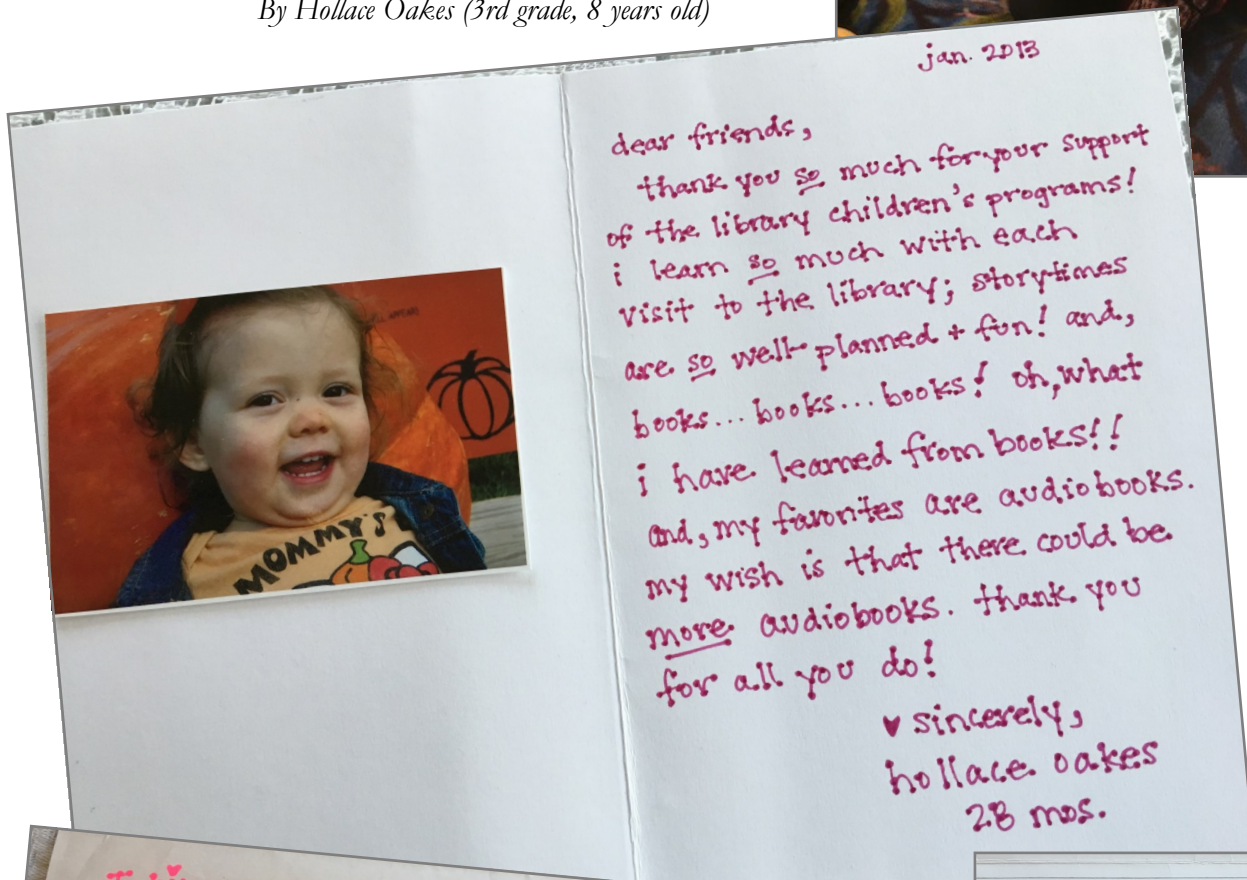 By Hollace Oakes (3rd grade, 8 years old)
jan. 2013
dear friends,
thank you so much for your support
of the library children's programs!
i learn so much with each
visit to the library; storytimes
are so well-planned + fun! and,
books... books... books! oh, what
i have learned from books!!
and, my favorites are audiobooks.
my wish is that there could be
more audiobooks. thank you
for all you do!
♥ sincerely,
hollace oakes
28 mos.
MOMMY'S